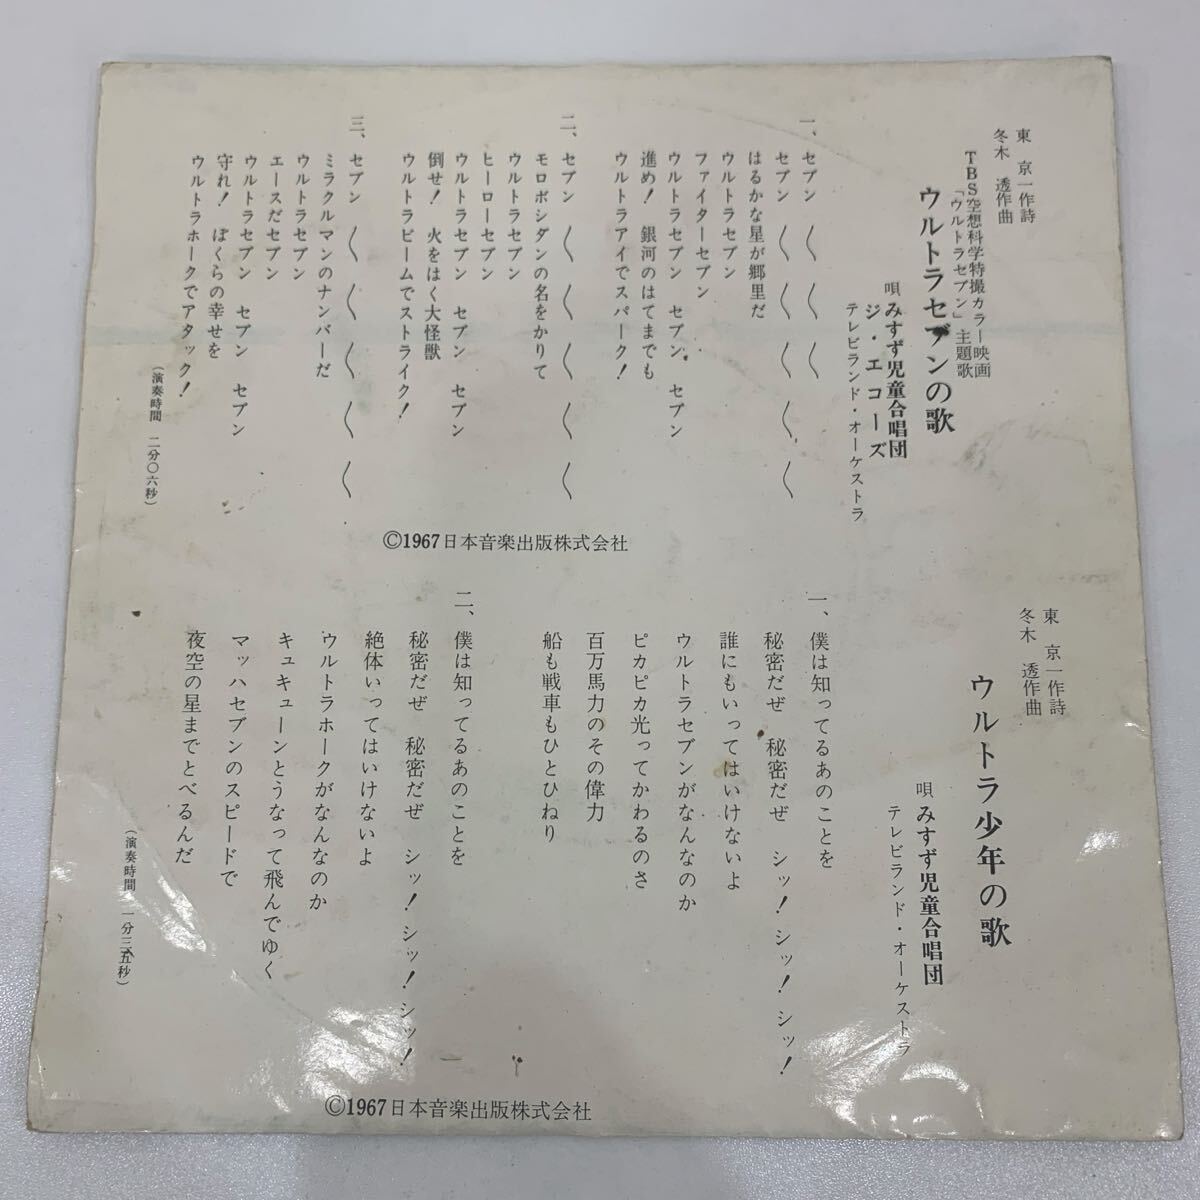 東 京一作詩
冬木 透作曲
TBS空想科学特撮カラー映画
「ウルトラセブン」主題歌
ウルトラセブンの歌
唄 みすず児童合唱団
ジ・エコーズ
テレビランド・オーケストラ
一、セブン 〱 〱 〱
セブン 〱 〱 〱 〱 〱
はるかな星が郷里だ
ウルトラセブン
ファイターセブン
ウルトラセブン セブン セブン
進め! 銀河のはてまでも
ウルトラアイでスパーク!
二、セブン 〱 〱 〱 〱 〱
モロボシダンの名をかりて
ウルトラセブン
ヒーローセブン
ウルトラセブン セブン セブン
倒せ! 火をはく大怪獣
ウルトラビームでストライク!
三、セブン 〱 〱 〱 〱 〱
ミラクルマンのナンバーだ
ウルトラセブン
エースだセブン
ウルトラセブン セブン セブン
守れ! ぼくらの幸せを
ウルトラホークでアタック!
(演奏時間 二分〇六秒)
©1967日本音楽出版株式会社
東 京一作詩
冬木 透作曲
ウルトラ少年の歌
唄 みすず児童合唱団
テレビランド・オーケストラ
一、僕は知ってるあのことを
秘密だぜ 秘密だぜ シッ! シッ! シッ!
誰にもいってはいけないよ
ウルトラセブンがなんなのか
ピカピカ光ってかわるのさ
百万馬力のその偉力
船も戦車もひとひねり
二、僕は知ってるあのことを
秘密だぜ 秘密だぜ シッ! シッ! シッ!
絶体いってはいけないよ
ウルトラホークがなんなのか
キュキューンとうなって飛んでゆく
マッハセブンのスピードで
夜空の星までとべるんだ
(演奏時間 一分三五秒)
©1967日本音楽出版株式会社